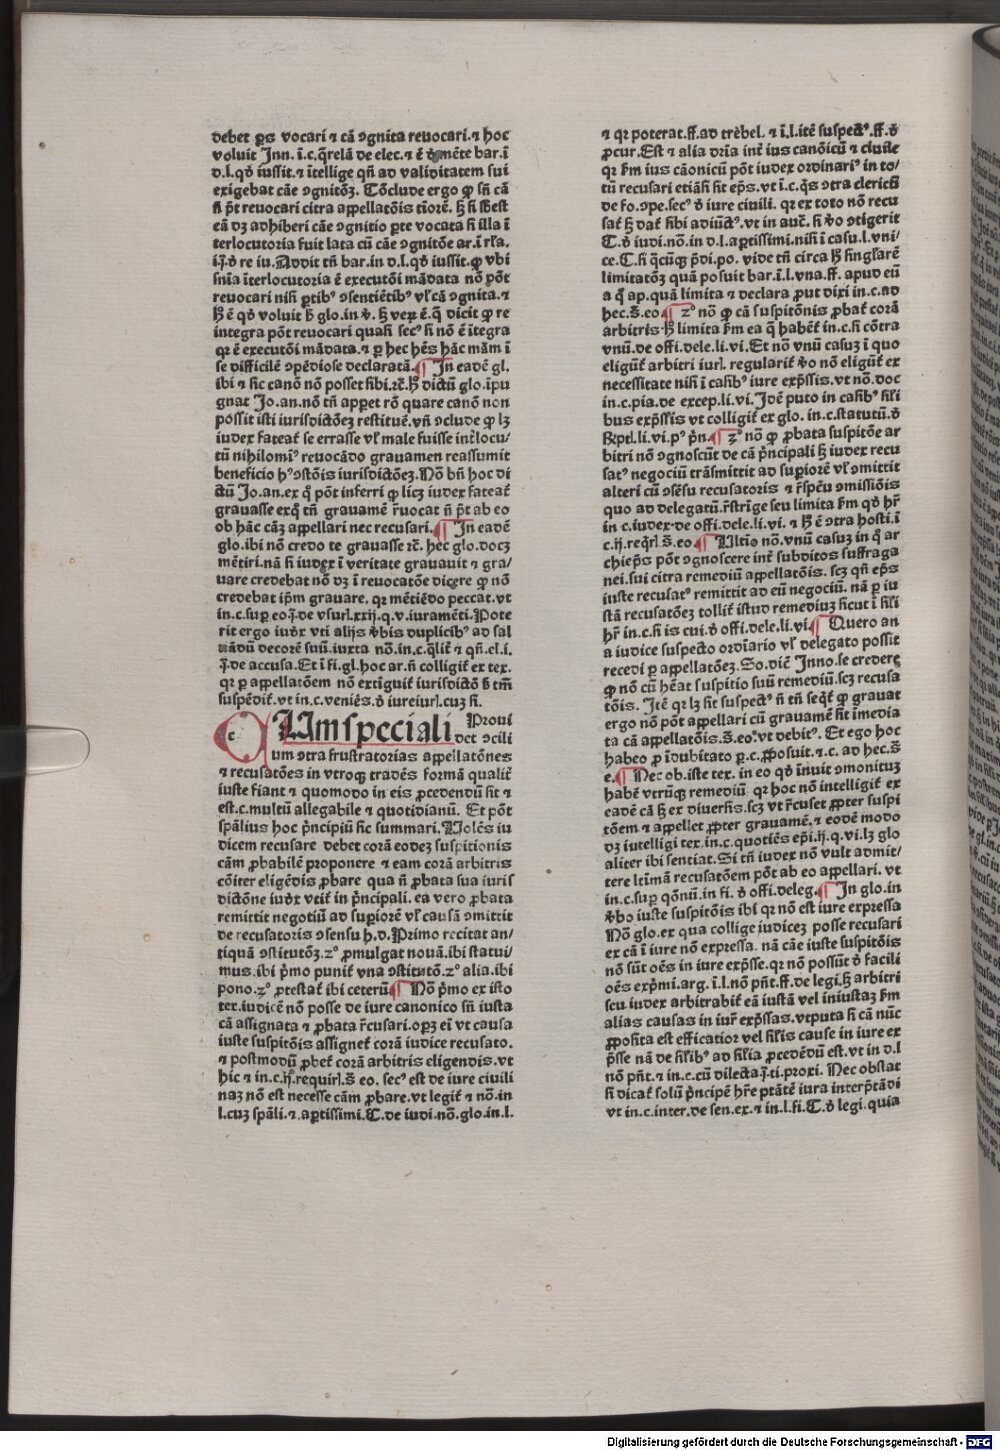 debet ꝑs vocari ⁊ cā ꝯgnita reuocari. ⁊ hoc
voluit Inn. ī.c. q̄relā de elec. ⁊ ē ꝺ mēte bar. ī
d.l. qꝺ iussit. ⁊ ītellige qn̄ ad validitatem sui
exigebat cāe ꝯgnitōꝫ. Cōclude ergo ꝙ sn̄ cā
reuocari citra appellatōis
eā dꝫ adhiberi cāe ꝯgnitio ꝑte vocata si illa ī
terlocutoria fuit lata cū cāe ꝯgnitōe ar. ī rl̄a.
i. q̄. ꝺ re iu. Addit tn̄ bar. in d.l. qꝺ iussit. ꝙ vbi
snīa īterlocutoria ē executōi mādata nō pōt
reuocari nisi ꝑtibꝰ ꝯsentiētibꝰ vl̄ cā ꝯgnita. ⁊
dicit ꝙ re
integra pōt reuocari quasi secꝰ si nō ē ītegra
qr ē executōi mādata. ⁊ ꝑ hec hēs hāc mām ī
se difficilē ꝯpēdiose declaratā. ¶ In eadē gl.
ibi ⁊ sic canō nō posset sibi. ꝛc̄. hꝫ dictū glo. īpu
gnat Jo. an. nō tn̄ apꝑet rō quare canō non
possit isti iurisdictōeꝫ restituē. vn̄ ꝯclude ꝙ lꝫ
iudex fateat̄ se errasse vl̄ male fuisse int̄locu/
tū nihilomīꝰ reuocādo grauamen reassumit
beneficio hꝰ ꝯstōis iurisdictōeꝫ. Nō bn̄ hoc di
ctū Jo. an. ex q̄ pōt inferri ꝙ licꝫ iudex fateat̄
grauasse exq̄ tn̄ grauamē r̄uocat n̄ p̄t ab eo
ob hāc cāꝫ appellari nec recusari. ¶ In eadē
glo. ibi nō credo te grauasse ꝛc̄. hec glo. docꝫ
mētiri. nā si iudex ī veritate grauauit ⁊ gra/
uare credebat nō dꝫ ī reuocatōe dicere ꝙ nō
credebat ip̄m grauare. qr mētiēdo peccat. vt
in. c. suꝑ eo. q̄. de vsur. xxij. q. v. iuramēti. Pote
rit ergo iudx vti alijs ꝟbis duplicibꝰ ad sal
uādū decorē suū. iuxta nō. in. c. q̄lit̄ ⁊ qn̄. el. i.
q̄. de accusa. Et ī fi. gl. hoc ar. n̄ colligit̄ ex tex.
qr ꝑ appellatōem nō extīguit̄ iurisdictō ꝫ tm̄
suspēdit̄. vt in. c. veniēs. ꝺ iureiur. cuꝫ si.
CUm speciali Proui
c det ꝯcili
um ꝯtra frustratorias appellatōnes
⁊ recusatōes in vtroqꝫ tradēs formā qualit̄
iuste fiant ⁊ quomodo in eis ꝓcedendū sit ⁊
est. c. multū allegabile ⁊ quotidianū. Et pōt
spālius hoc pn̄cipiū sic summari. Volēs iu
dicem recusare debet corā eodeꝫ suspitionis
cām ꝓbabilē proponere ⁊ eam corā arbitris
cōiter eligēdis ꝓbare qua n̄ ꝓbata sua iuris
dictōne iudx vtit̄ in pn̄cipali. ea vero ꝓbata
remittit negotiū ad supiorē vl̄ causā ꝯmittit
de recusatoris ꝯsensu h.d. Primo recitat an/
tiquā ꝯstitutōꝫ. 2ꝰ ꝓmulgat nouā. ibi statui/
mus. ibi p̄mo punit̄ vna ꝯstitutō. 2ꝰ alia. ibi
pono. 2ꝰ ꝓtestat̄ ibi ceterū. ¶ Nō p̄mo ex isto
tex. iudicē nō posse de iure canonico sn̄ iusta
cā assignata ⁊ ꝓbata r̄cusari. opꝫ eī vt causa
iuste suspitōis assignet̄ corā iudice recusato.
⁊ postmodū ꝓbet̄ corā arbitris eligendis. vt
hic ⁊ in. c. ij. requir. s̄ eo. secꝰ est de iure ciuili
naꝫ nō est necesse cām ꝓbare. vt legit̄ ⁊ nō. in
l. cuꝫ spāli. ⁊. aꝑtissimi. C. de iudi. nō. glo. in. l.
⁊ qr poterat. ff. ad trēbel. ⁊ ī. l. itē suspectꝰ. ff. ꝺ
ꝓcur. Est ⁊ alia dr̄ia int̄ ius canōicū ⁊ ciuile
qr ẜm ius cāonicū pōt iudex ordinariꝰ in to/
tū recusari etiāsi sit ep̄s. vt ī. c. q̄s ꝯtra clericū
de fo. ꝯpe. secꝰ ꝺ iure ciuili. qr ex toto nō recu
sat̄ ꝫ dat̄ sibi adiūctꝰ. vt in auc̄. si ꝟo ꝯtigerit
C. ꝺ iudi. nō. in d.l. aꝑtissimi. nisi ī casu. l. vni/
ce. C. si q̄cūqꝫ p̄di. po. vide tn̄ circa hꝫ singl̄arē
limitatōꝫ quā posuit bar. ī. l. vna. ff. apud eū
a q̄ ap. quā limita ⁊ declara ꝓut dixi in. c. ad
hec. s̄. eo. ¶ 2ꝰ nō ꝙ cā suspitōnis ꝓbat̄ corā
arbitris. hꝫ limita ẜm ea q̄ habēt̄ in. c. si cōtra
vnū. de offi. dele. li. vi. Et nō vnū casuꝫ ī quo
eligūt̄ arbitri iurl. regularit̄ ꝟo nō eligūt̄ ex
necessitate nisi ī casibꝰ iure exp̄ssis. vt nō. doc
in. c. pia. de excep. li. vi. Idē puto in casibꝰ sili
bus exp̄ssis vt colligit̄ ex glo. in. c. statutū. ꝺ
Rcp̄t. li. vi. pꝰ pn̄. ¶ 2ꝰ nō ꝙ ꝓbata suspitōe ar
bitri nō ꝯgnoscūt de cā pn̄cipali ꝫ iudex recu
satꝰ negociū trāsmittit ad supiorē vl̄ ꝯmittit
alteri cū ꝯsēsu recusatoris ⁊ r̄spēu ꝯmissiōis
quo ad delegatū. r̄strīge seu limita ẜm qꝺ hr̄
in c. iudex. de offi. dele. li. vi. ⁊ hꝫ ē ꝯtra hosti. ī
c. ij. req̄r. s̄. eo. ¶ Ultīo nō. vnū casuꝫ in q̄ ar
chiep̄s pōt ꝯgnoscere int̄ subditos suffraga
nei. sui citra remediū appellatōis. scꝫ qn̄ ep̄s
iuste recusatꝰ remittit ad eū negociū. nā ꝑ iu
stā recusatōeꝫ tollit̄ istud remediuꝫ sicut ī sili
hr̄ in. c. si is cui. ꝺ offi. dele. li. vi. ¶ Quero an
a iudice suspecto ordīario vl̄ delegato possit
recedi ꝑ appellatōeꝫ. So. diē Inno. se credere
ꝙ nō cū hēat suspitio suū remediū. scꝫ recusa
tōis. Itē qr lꝫ sit suspectꝰ n̄ tn̄ seq̄t̄ ꝙ grauat
ergo nō pōt appellari cū grauamē sit īmedia
ta cā appellatōis. s̄. eo. vt debitꝰ. Et ego hoc
habeo ꝑ īdubitato ꝑ. c. ꝓposuit. ⁊. c. ad hec. s̄
e. ¶ Nec ob. iste tex. in eo qꝺ īnuit ꝯmonituꝫ
habē vtrūqꝫ remediū qr hoc nō intelligit̄ ex
eadē cā ꝫ ex diuersis. scꝫ vt r̄cuset ꝓpter suspi
tōem ⁊ appellet ꝓpter grauamē. ⁊ eodē modo
dꝫ intelligi tex. in. c. quotiēs ep̄i. ij. q. vi. lꝫ glo
aliter ibi sentiat. Si tn̄ iudex nō vult admit/
tere ltīmā recusatōem pōt ab eo appellari. vt
in. c. suꝑ qōnū. in fi. ꝺ offi. deleg. ¶ In glo. in
ꝟbo iuste suspitōis ibi qr nō est iure expressa
Nō glo. ex qua collige iudiceꝫ posse recusari
ex cā ī iure nō expressa. nā cāe iuste suspitōis
nō sūt oēs in iure exp̄sse. qr nō possūt ꝺ facili
oēs exp̄mi. arg. ī. l. nō pn̄t. ff. de legi. ꝫ arbitri
seu iudex arbitrabit̄ eā iustā vel iniustaꝫ ẜm
alias causas in iur̄ exp̄ssas. vtputa si cā nūc
ꝓposita est efficatior vel silis cause in iure ex
p̄sse nā de silibꝰ ad silia ꝓcedēdū est. vt in d.l
nō pn̄t. ⁊ in. c. cū dilecta. q̄. ti. proxi. Nec obstat
si dicat̄ solū pn̄cipē hr̄e ptātē iura interp̄tādi
vt in. c. inter. de sen. ex. ⁊ in. l. fi. C. ꝺ legi. quia
Digitalisierung gefördert durch die Deutsche Forschungsgemeinschaft - DFG